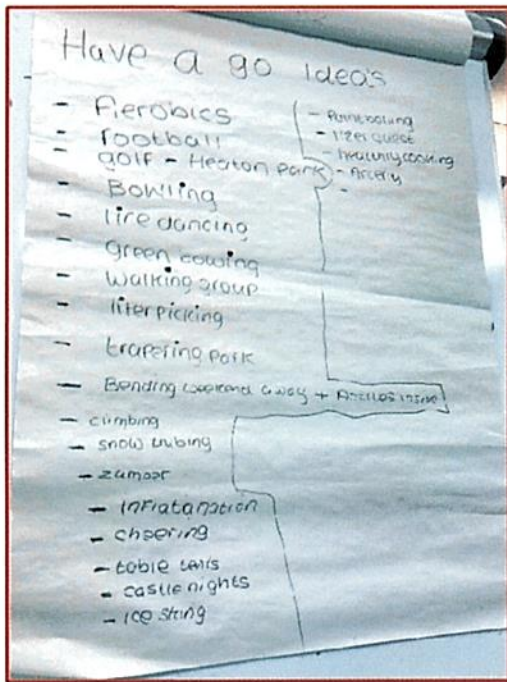 Have a go Ideas
- Aerobics
- football
- golf - Heaton park
- Bowling
- line dancing
- green bowling
- Walking group
- liter picking
- trapering park
- Bending weekend away +
- climbing
- snow tubing
- zumbar
- Inflatanation
- cheering
- table tenis
- castle nights
- ice sking
- Paintboling
- lizer quest
- healthly cooking
- Arcery
-